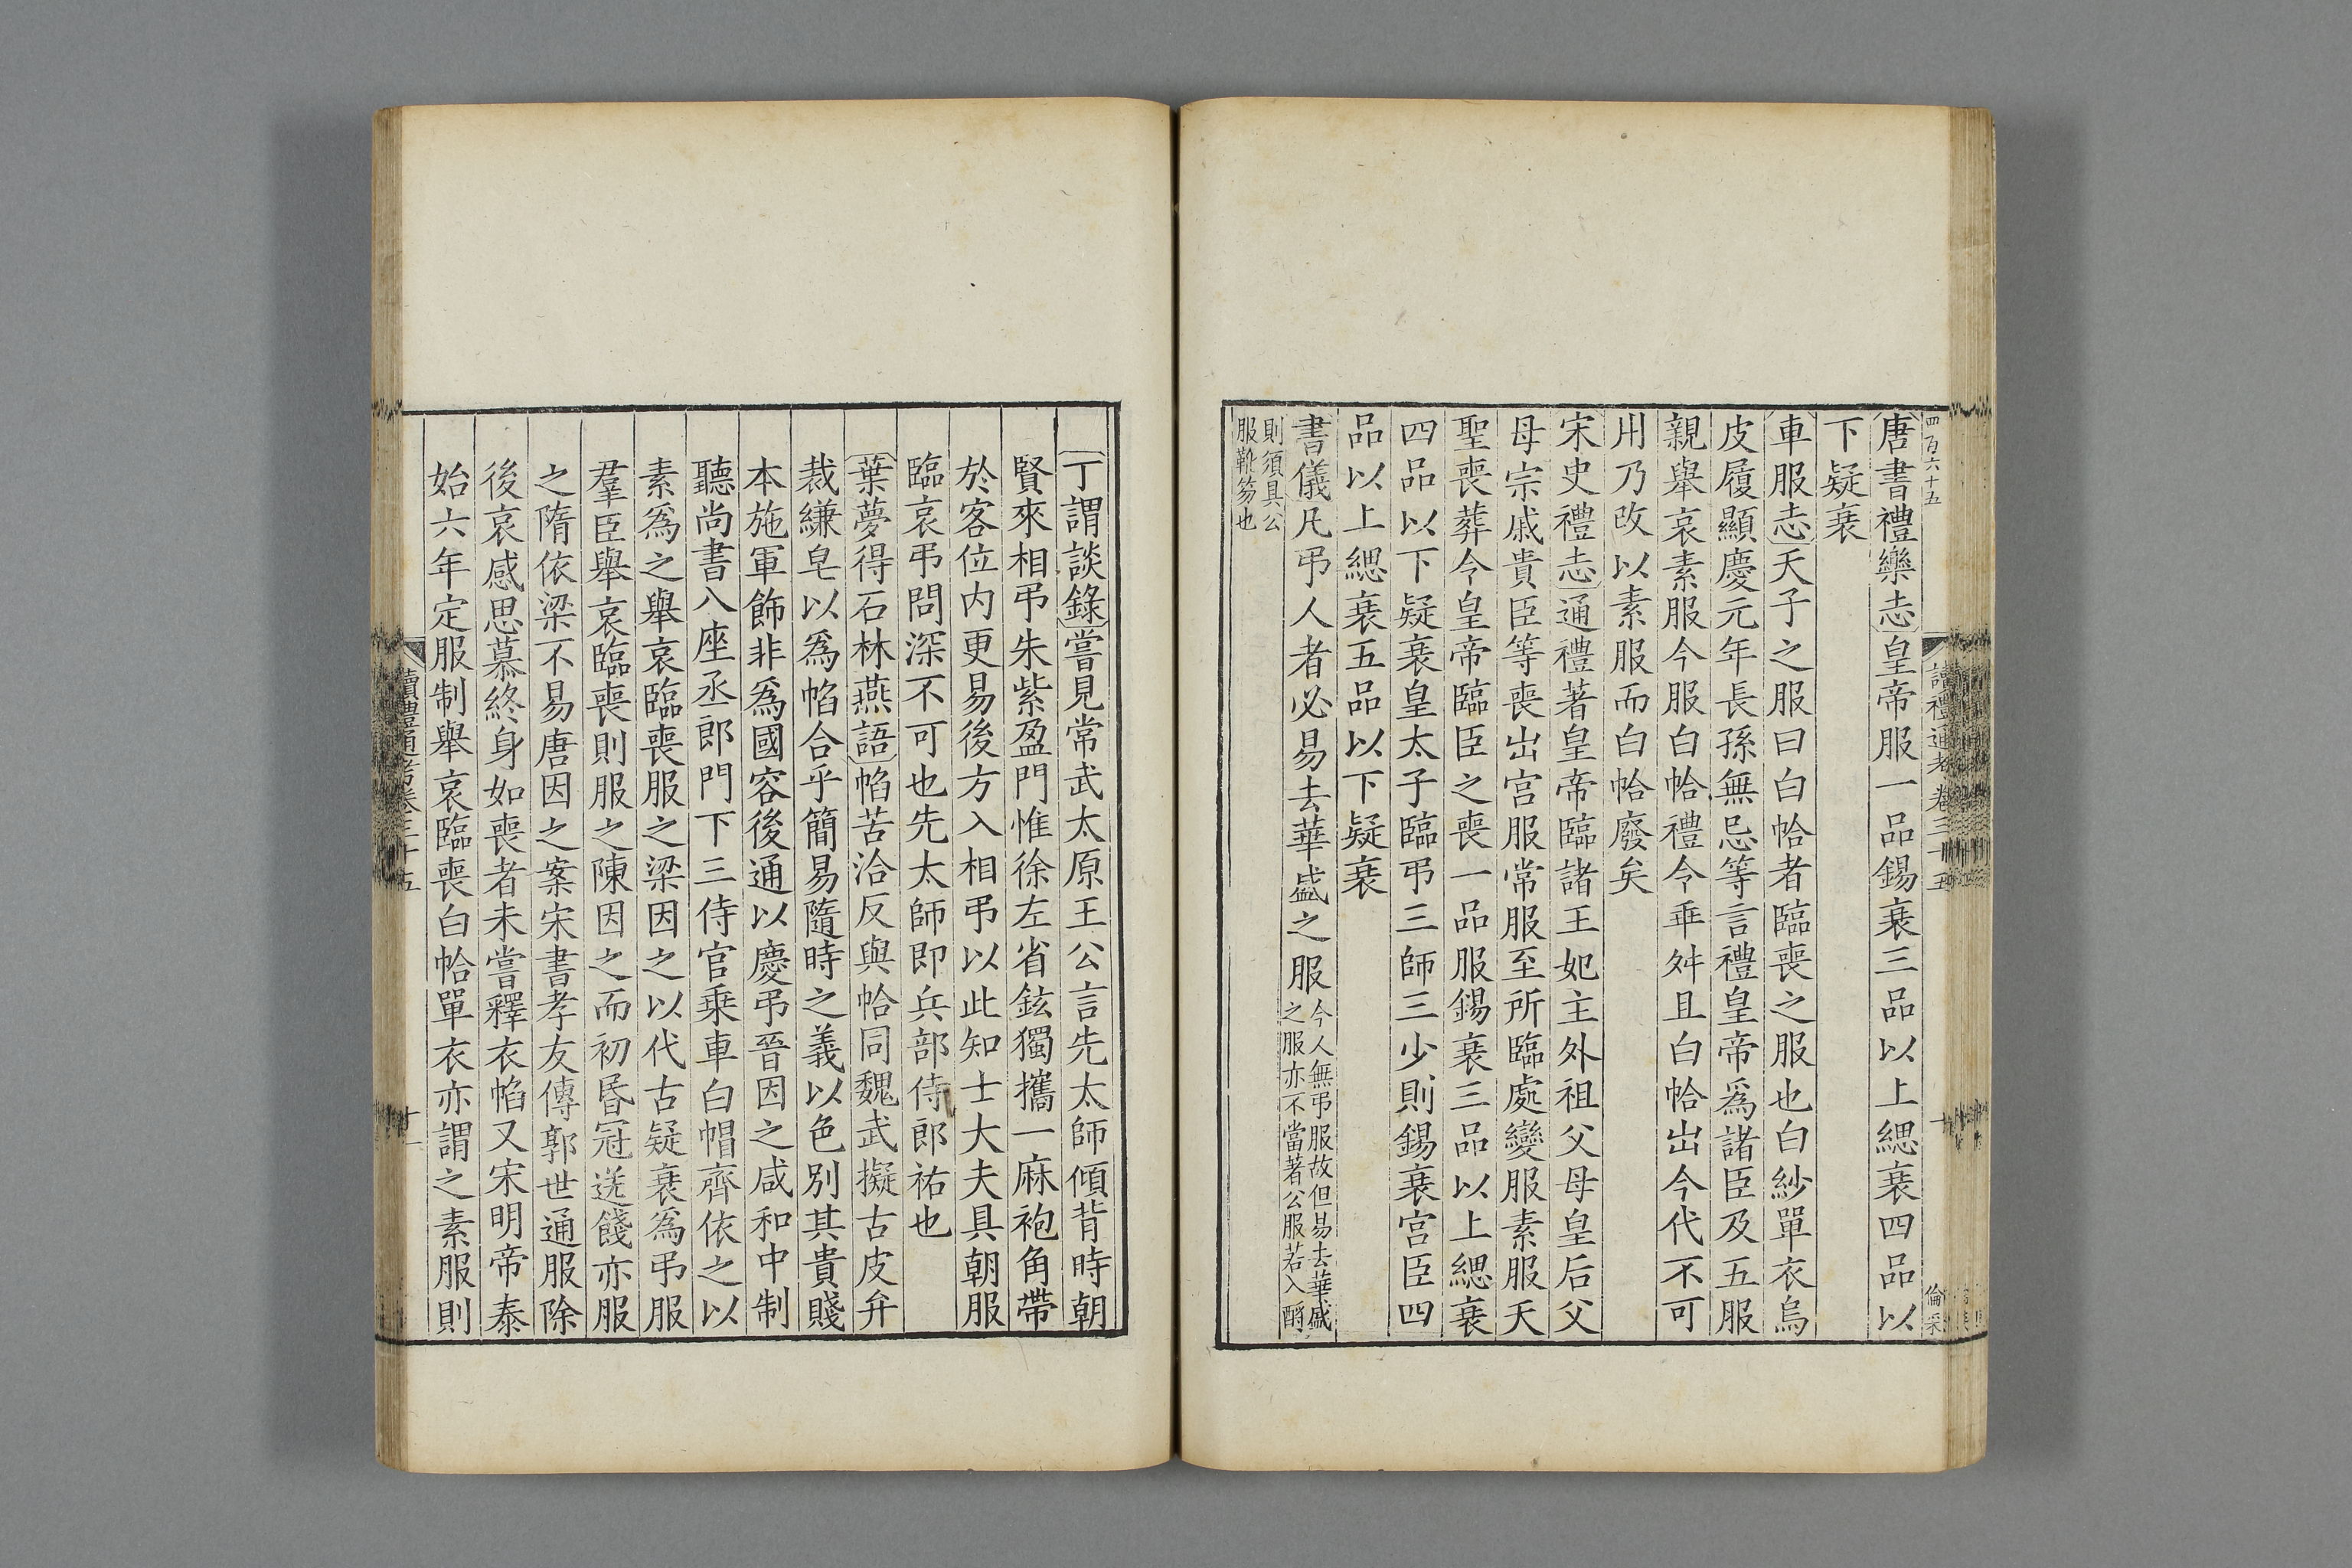 四百六十五
讀禮通考卷三十五
十
倫采
唐書禮樂志皇帝服一品錫衰三品以上緦衰四品以
下疑衰
車服志天子之服曰白帢者臨喪之服也白紗單衣烏
皮履顯慶元年長孫無忌等言禮皇帝爲諸臣及五服
親舉哀素服今服白帢禮令乖舛且白帢出今代不可
用乃改以素服而白帢廢矣
宋史禮志通禮著皇帝臨諸王妃主外祖父母皇后父
母宗戚貴臣等喪出宫服常服至所臨處變服素服天
聖喪葬令皇帝臨臣之喪一品服錫衰三品以上緦衰
四品以下疑衰皇太子臨弔三師三少則錫衰宫臣四
品以上緦衰五品以下疑衰
書儀凡弔人者必易去華盛之服今人無弔服故但易去華盛
之服亦不當著公服若入酹
則須具公
服靴笏也
丁謂談錄嘗見常武太原王公言先太師傾背時朝
賢來相弔朱紫盈門惟徐左省鉉獨攜一麻袍角帶
於客位内更易後方入相弔以此知士大夫具朝服
臨哀弔問深不可也先太師即兵部侍郎祐也
葉夢得石林燕語帢苦洽反與帢同魏武擬古皮弁
裁縑皂以爲帢合乎簡易隨時之義以色別其貴賤
本施軍飾非爲國容後通以慶弔晉因之咸和中制
聽尚書八座丞郎門下三侍官乘車白帽齊依之以
素爲之舉哀臨喪服之梁因之以代古疑衰爲弔服
羣臣舉哀臨喪則服之陳因之而初昏冠送餞亦服
之隋依梁不易唐因之案宋書孝友傳郭世通服除
後哀感思慕終身如喪者未嘗釋衣帢又宋明帝泰
始六年定服制舉哀臨喪白帢單衣亦謂之素服則
讀禮通考卷三十五
十一